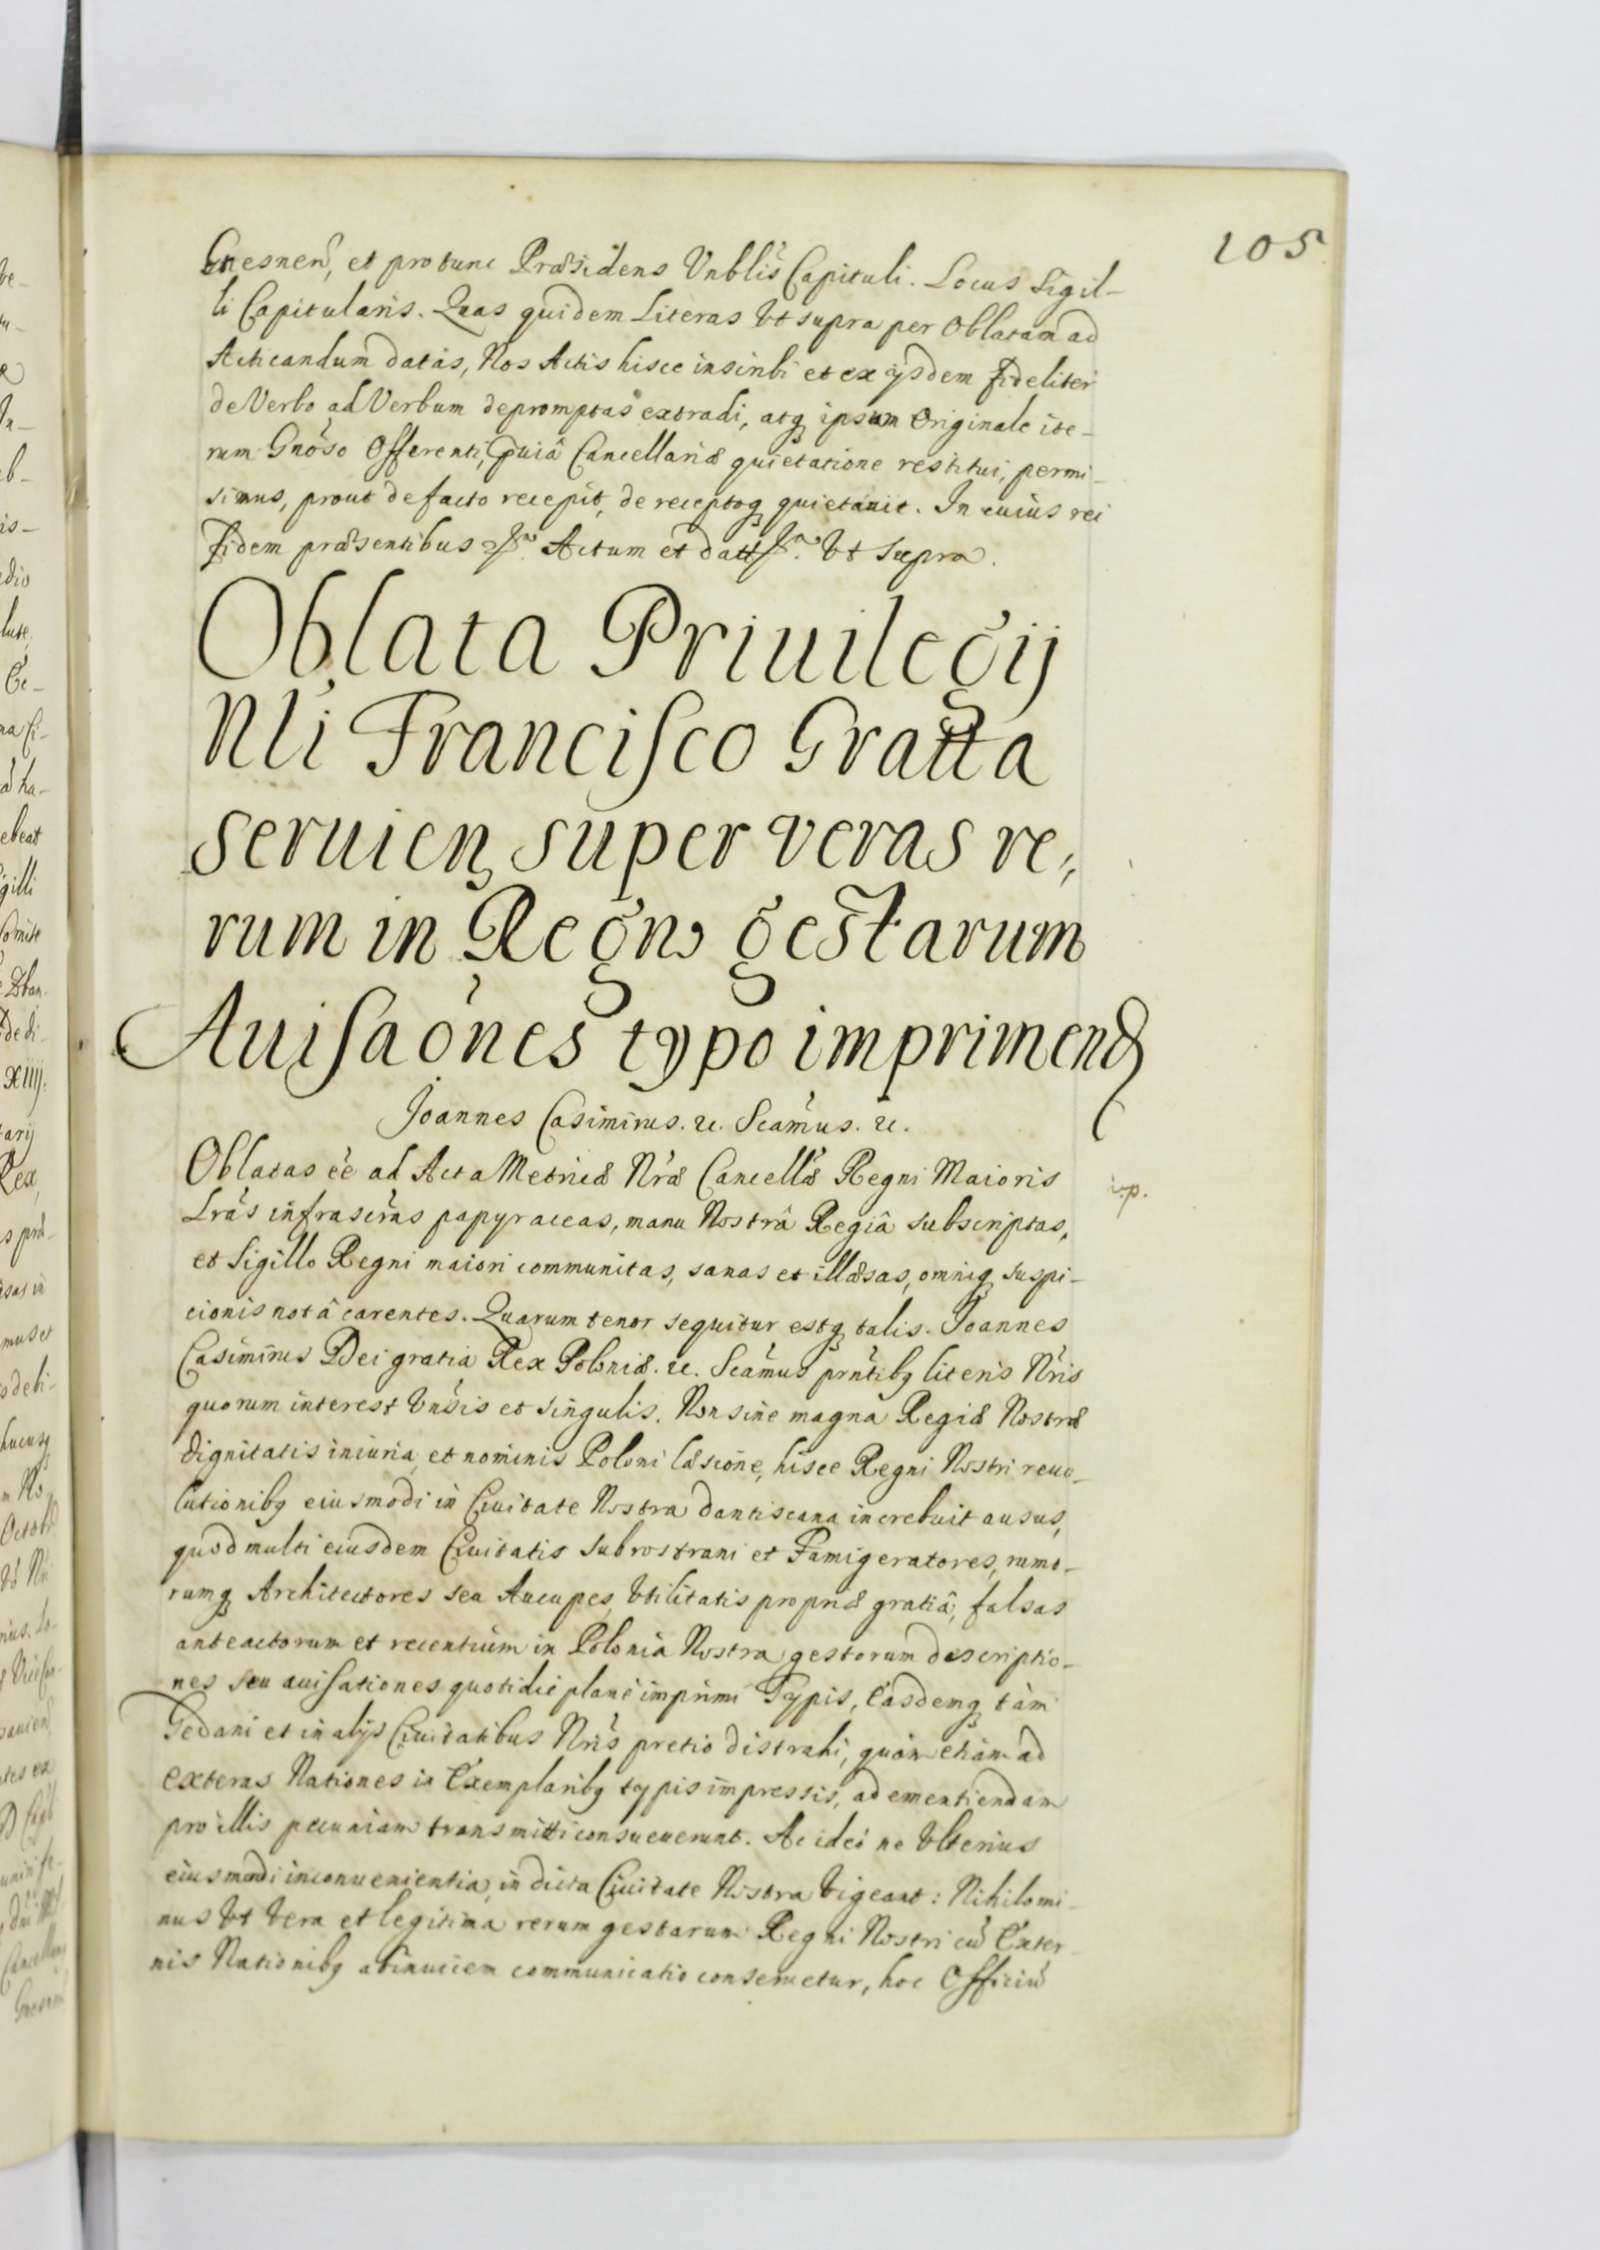 105
Gnesnen, et protunc Præsidens Vnblis Capituli. Locus Sigil-
li Capitularis. Quas quidem Literas Vt supra per Oblatam ad
Acticandum datas, Nos Actis hisce inscribi et ex ijsdem fideliter
de Verbo ad Verbum depromptas extradi, atq ipsum Originale ite-
rum Gnoso Offerenti, Cancellariæ quietatione restitui, permi-
simus, prout de facto recepit, de receptoq quietauit. In cuius rei
fidem præsentibus Actum et datt Vt Supra.
Oblata Priuilegij
Nli Francisco Gratta
seruien super veras re,
rum in Regno gestarum
Auisaones typo imprimend
Joannes Casimirus. &c. Scamus. &c.
Oblatas ee ad Acta Metricæ Nræ Cancellæ Regni Maioris
Lras infrascras papyraceas, manu Nostrâ Regiâ subscriptas,
et Sigillo Regni maiori communitas, sanas et illæsas, omniq suspi-
cionis notâ carentes. Quarum tenor sequitur estq talis. Joannes
Casimirus Dei gratia Rex Poloniæ. &c. Scamus prntibq literis Nris
quorum interest Vnsis et singulis. Non sine magna Regiæ Nostræ
dignitatis iniuria, et nominis Poloni læsione, hisce Regni Nostri reuo-
lutionibq eiusmodi in Ciuitate Nostra dantiscana increbuit ausus,
quod multi eiusdem Ciuitatis subrostrani et Famigeratores, rumo-
rumq Architectores seu Aucupes, Vtilitatis propriæ gratiâ, falsas
anteactorum et recentium in Polonia Nostra gestorum descriptio-
nes seu auisationes quotidie planè imprimi Typis, Easdemq tàm
Gedani et in alijs Ciuitatibus Nris pretio distrahi, quàm etiàm ad
exteras Nationes in Exemplaribq typis impressis, ad ementiendam
pro illis pecuniam transmitti consueuerunt. Ac ideò ne Vlterius
eiusmodi inconuenientia, in dicta Ciuitate Nostra Vigeant: Nihilomi-
nus Vt Vera et legitima rerum gestarum Regni Nostri cũ Exter-
nis Nationibq abinuicem communicatio conseruetur, hoc Officiũ